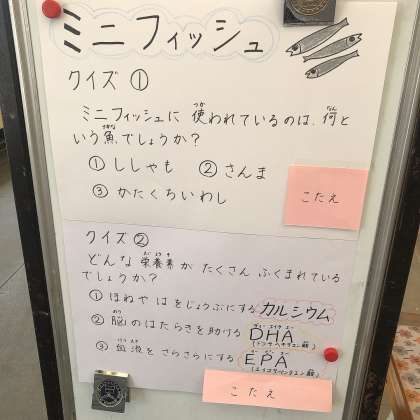 ミニフィッシュ
クイズ①
ミニフィッシュに使われているのは、何と
いう魚でしょうか?
①ししゃも ②さんま
③かたくちいわし
こたえ
クイズ②
どんな栄養素がたくさんふくまれている
でしょうか?
①ほねやはをじょうぶにするカルシウム
②脳のはたらきを助けるDHA
(ドコサヘキサエン酸)
③血液をさらさらにするEPA
(エイコサペンタエン酸)
こたえ